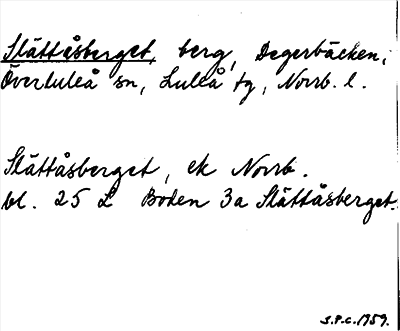 Slättåsberget, berg, Degerbäcken,
Överluleå sn, Luleå tg, Norrb. l.
Slättåsberget, ek Norrb.
bl. 25 L Boden 3a Slättåsberget.
S.P.C. 1959.